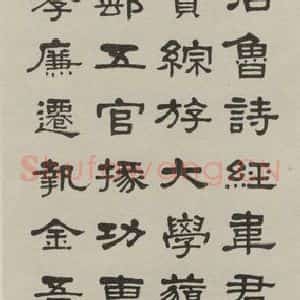 治魯詩經韋君
貫綜斿大學藐
郵五官掾功曹
孝廉遷執金吾
Shufawang.CN